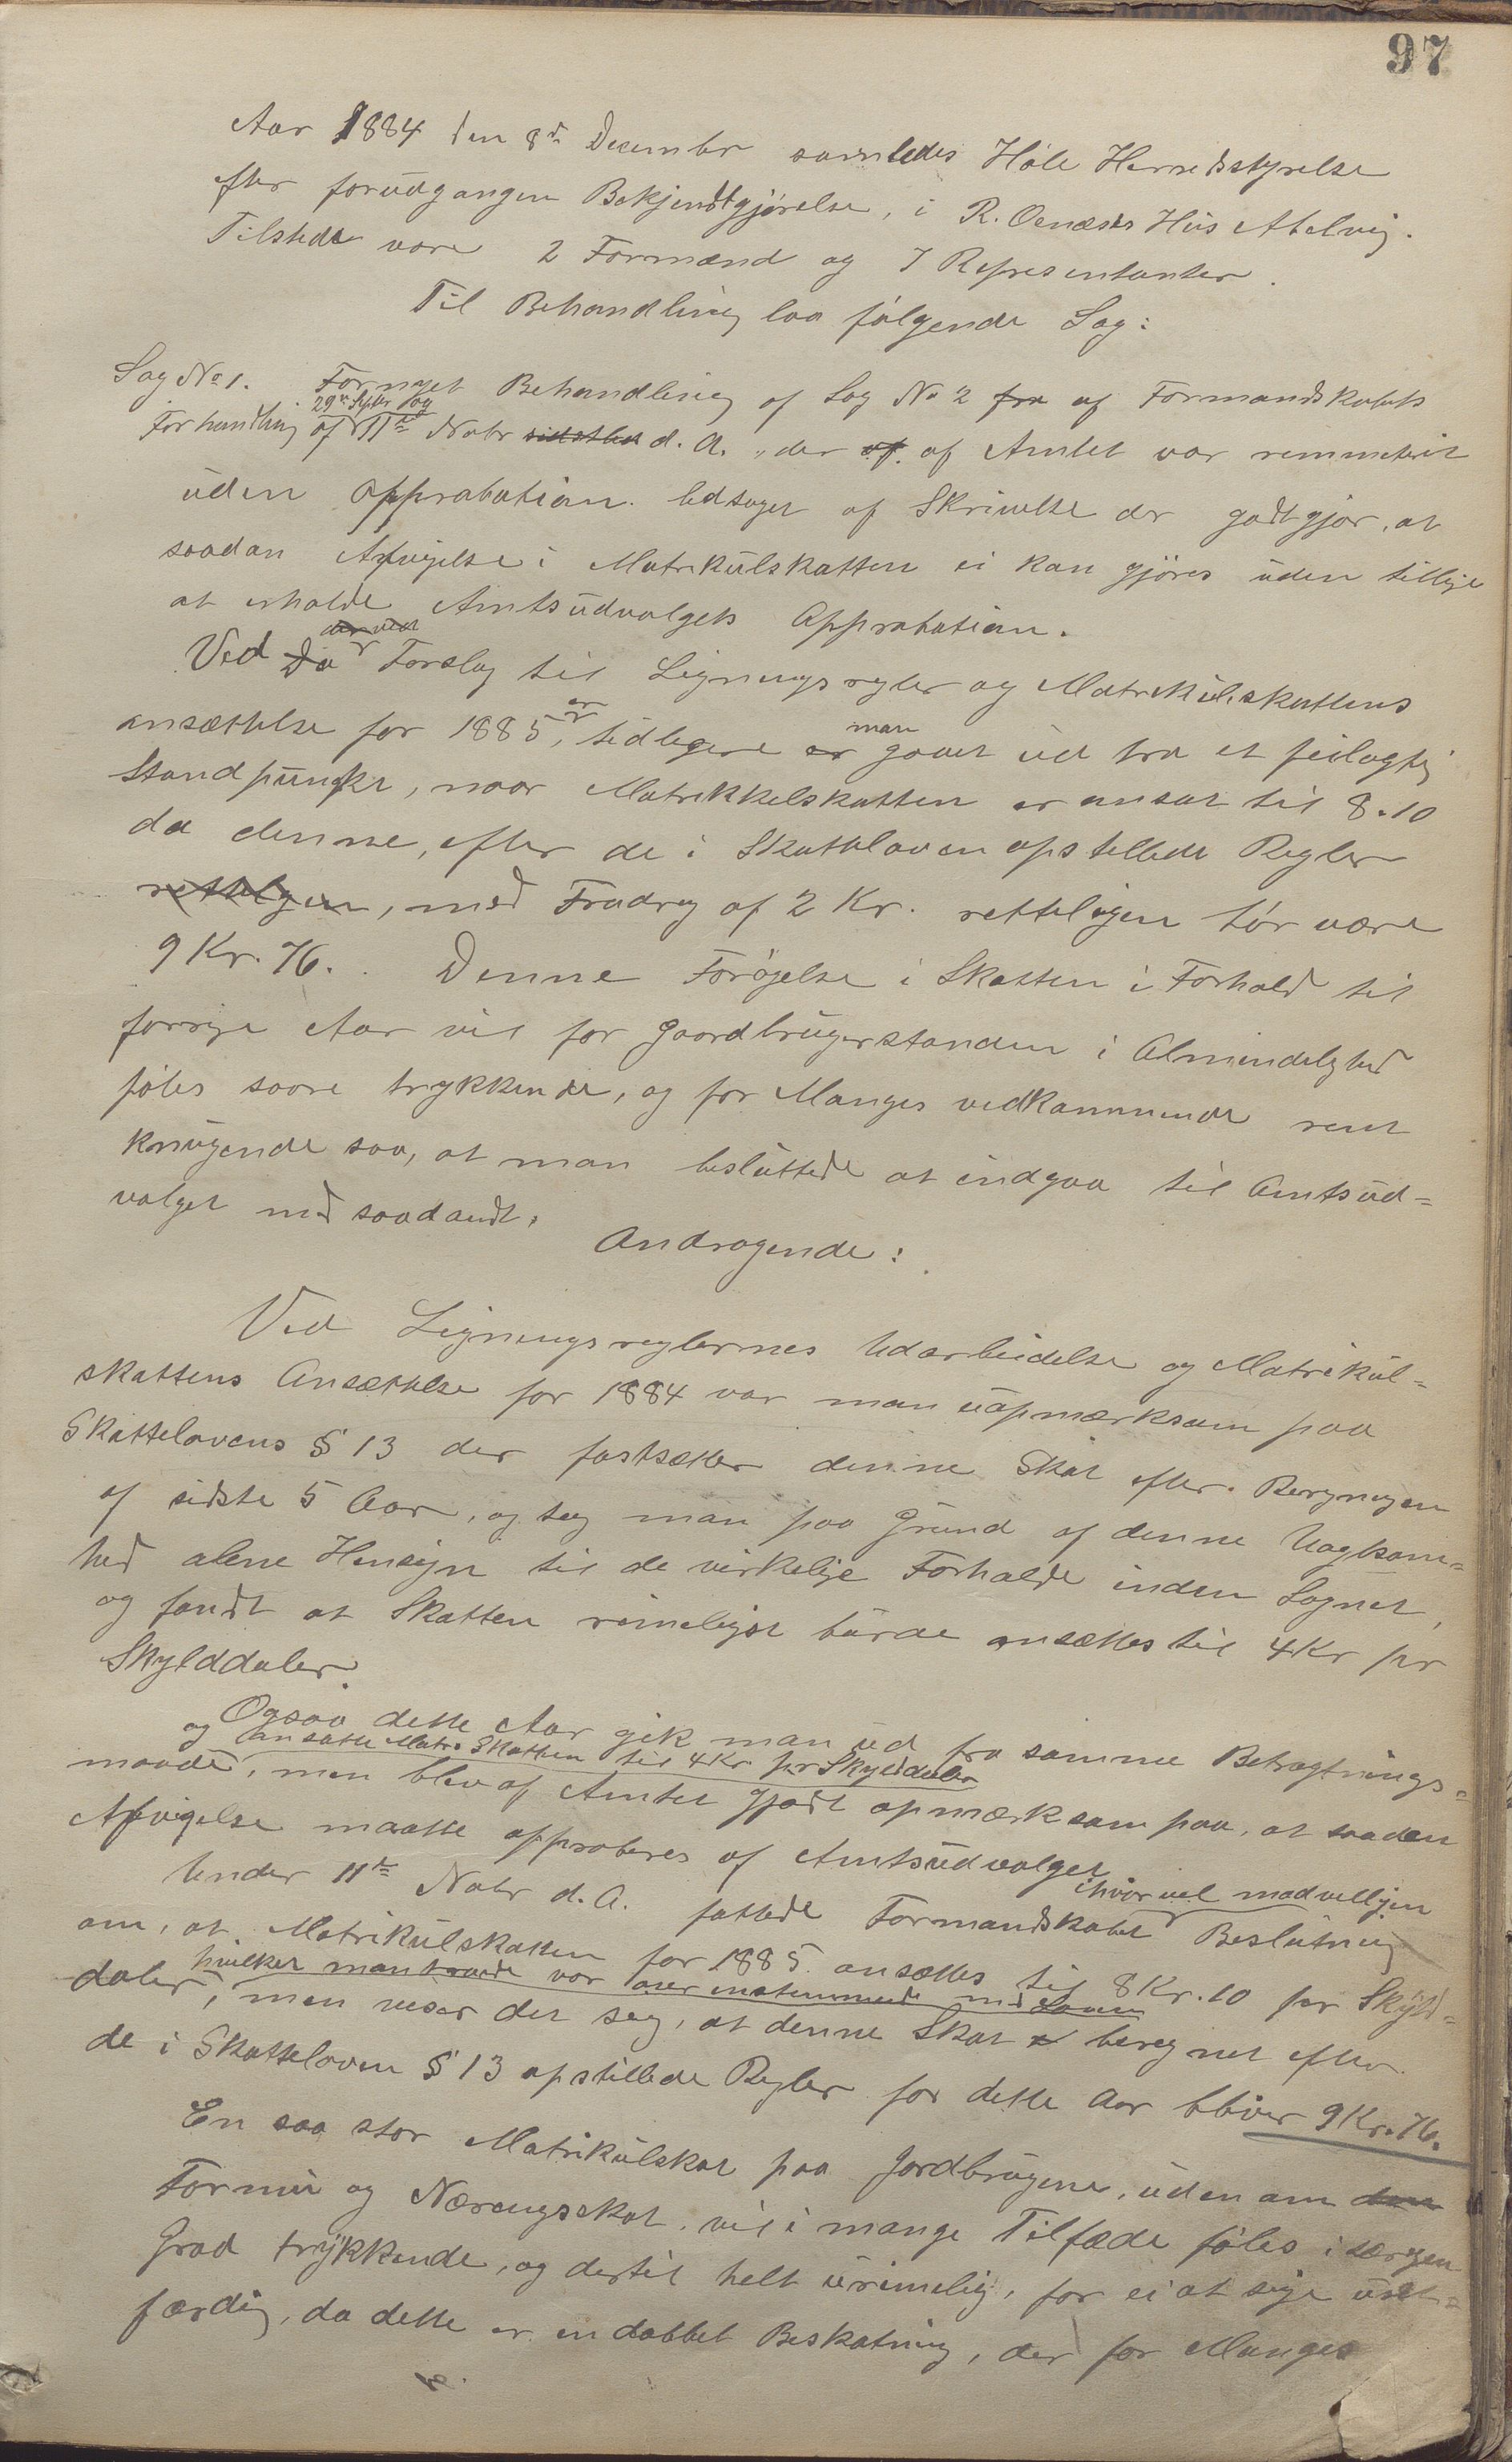 97
Aar 1884 den 8de Decembr samledes Høle Herredsstyrelse
efter forudgangen Bekjendtgjørelse, i R. Oenæses Hus Apelvig.
Tilstede vare 2 Formænd og 7 Representanter.
Til Behandling laa følgende Sag:
Sag No 1. Fornyet Behandling af Sag No 2 fra af Formandskabets
29de Septbr og
Forhandling af 11te Novbr sidstled d. A., der af. af Amtet var remitteret
uden Approbation. ledsaget af Skrivelse der godtgjør, at
saadan Afvigelse i Matrikulskatten ei kan gjøres uden tillige
at erholde Amtsudvalgets Approbation.
Ved Da Forslag til Ligningsregler og Matrikulskattens
er man
ansættelse for 1885, tidligere er gaaet ud fra et feilagtig
Standpunkt, naar Matrikkelskatten er ansat til 8.10
da denne, efter de i Skatteloven opstillede Regler
rettelgen, med Fradrag af 2 Kr. retteligen bør være
9 Kr. 76. Denne Forøgelse i Skatten i Forhold til
forrige Aar vil for Gaardbrugerstanden i Almindelighed
føles saare trykkende, og for Manges vedkommende rent
knugende saa, at man besluttede at indgaa til Amtsud-
valget med saadandt.
Andragende:
Ved Ligningsreglernes Udarbeidelse og Matrikul-
skattens Ansættelse for 1884 var man uopmærksom paa
Skattelovens § 13 der fastsætter denne Skat efter Beregningen
af sidste 5 Aar, og tog man paa Grund af denne Uagtsom-
hed alene Hensyn til de virkelige Forholde inden Sognet,
og fandt at Skatten rimeligst burde ansættes til 4 Kr pr
Skylddaler.
Ogsaa dette Aar gik man ud fra samme Betragtnings-
og ansatte Matr. Skatten til 4 Kr pr Skylddaler
maade, men blev af Amtet gjort opmærksom paa, at saadan
Afvigelse maatte approberes af Amtsudvalget
ihvorvel modvilligen
Under 11te Novbr d. A. fattede Formandskabet Beslutning
om, at Matrikulskatten for 1885 ansættes til 8 Kr. 10 pr Skyld-
hvilket man troede var overenstemmende med Loven
daler, men viser det seg, at denne Skat beregnet efter
de i Skatteloven § 13 opstillede Regler for dette Aar bliver 9 Kr. 76.
En saa stor Matrikulskat paa Jordbrugene, uden om den
Formue og Næringsskat, vil i mange Tilfælde føles i særegen
Grad trykkende, og dertil helt urimelig, for ei at sige uret-
færdig, da dette er en dobbelt Beskatning, der for Manges